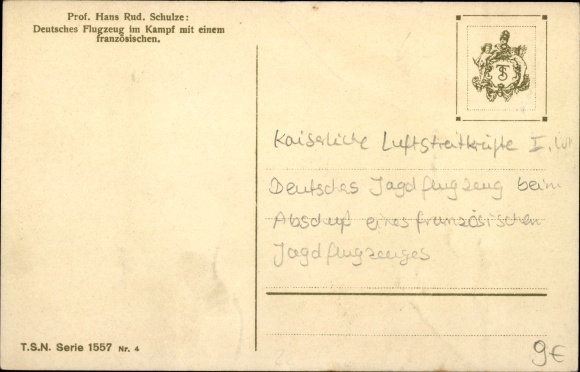 Prof. Hans Rud. Schulze:
Deutsches Flugzeug im Kampf mit einem
französischen.
TSN
Kaiserliche Luftstreitkräfte I.
Deutsches Jagdflugzeug beim
Abschuß eines französischen
Jagdflugzeuges
T.S.N. Serie 1557 Nr. 4
9€